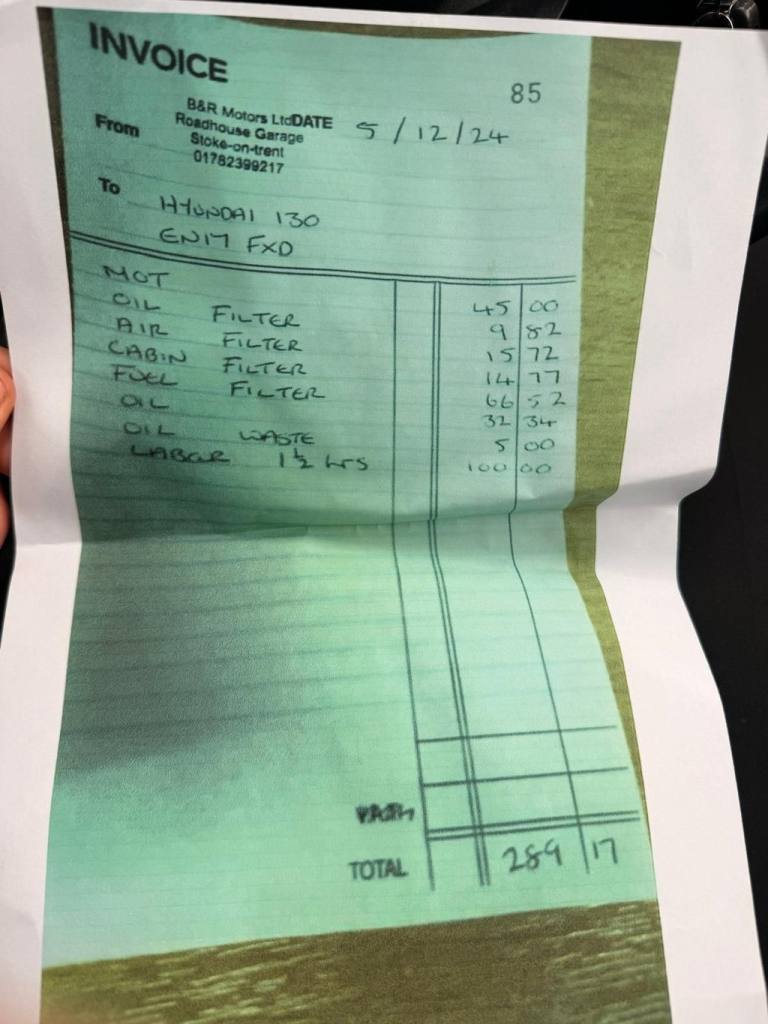 INVOICE
85
B&R Motors Ltd
DATE 5/12/24
From
Roadhouse Garage
Stoke-on-trent
01782399217
To
HYUNDAI 130
EN17 FXD
MOT 45 00
OIL FILTER 9 82
AIR FILTER 15 72
CABIN FILTER 14 77
FUEL FILTER 66 52
OIL 32 34
OIL WASTE 5 00
LABOUR 1½ hrs 100 00
TOTAL 289 17